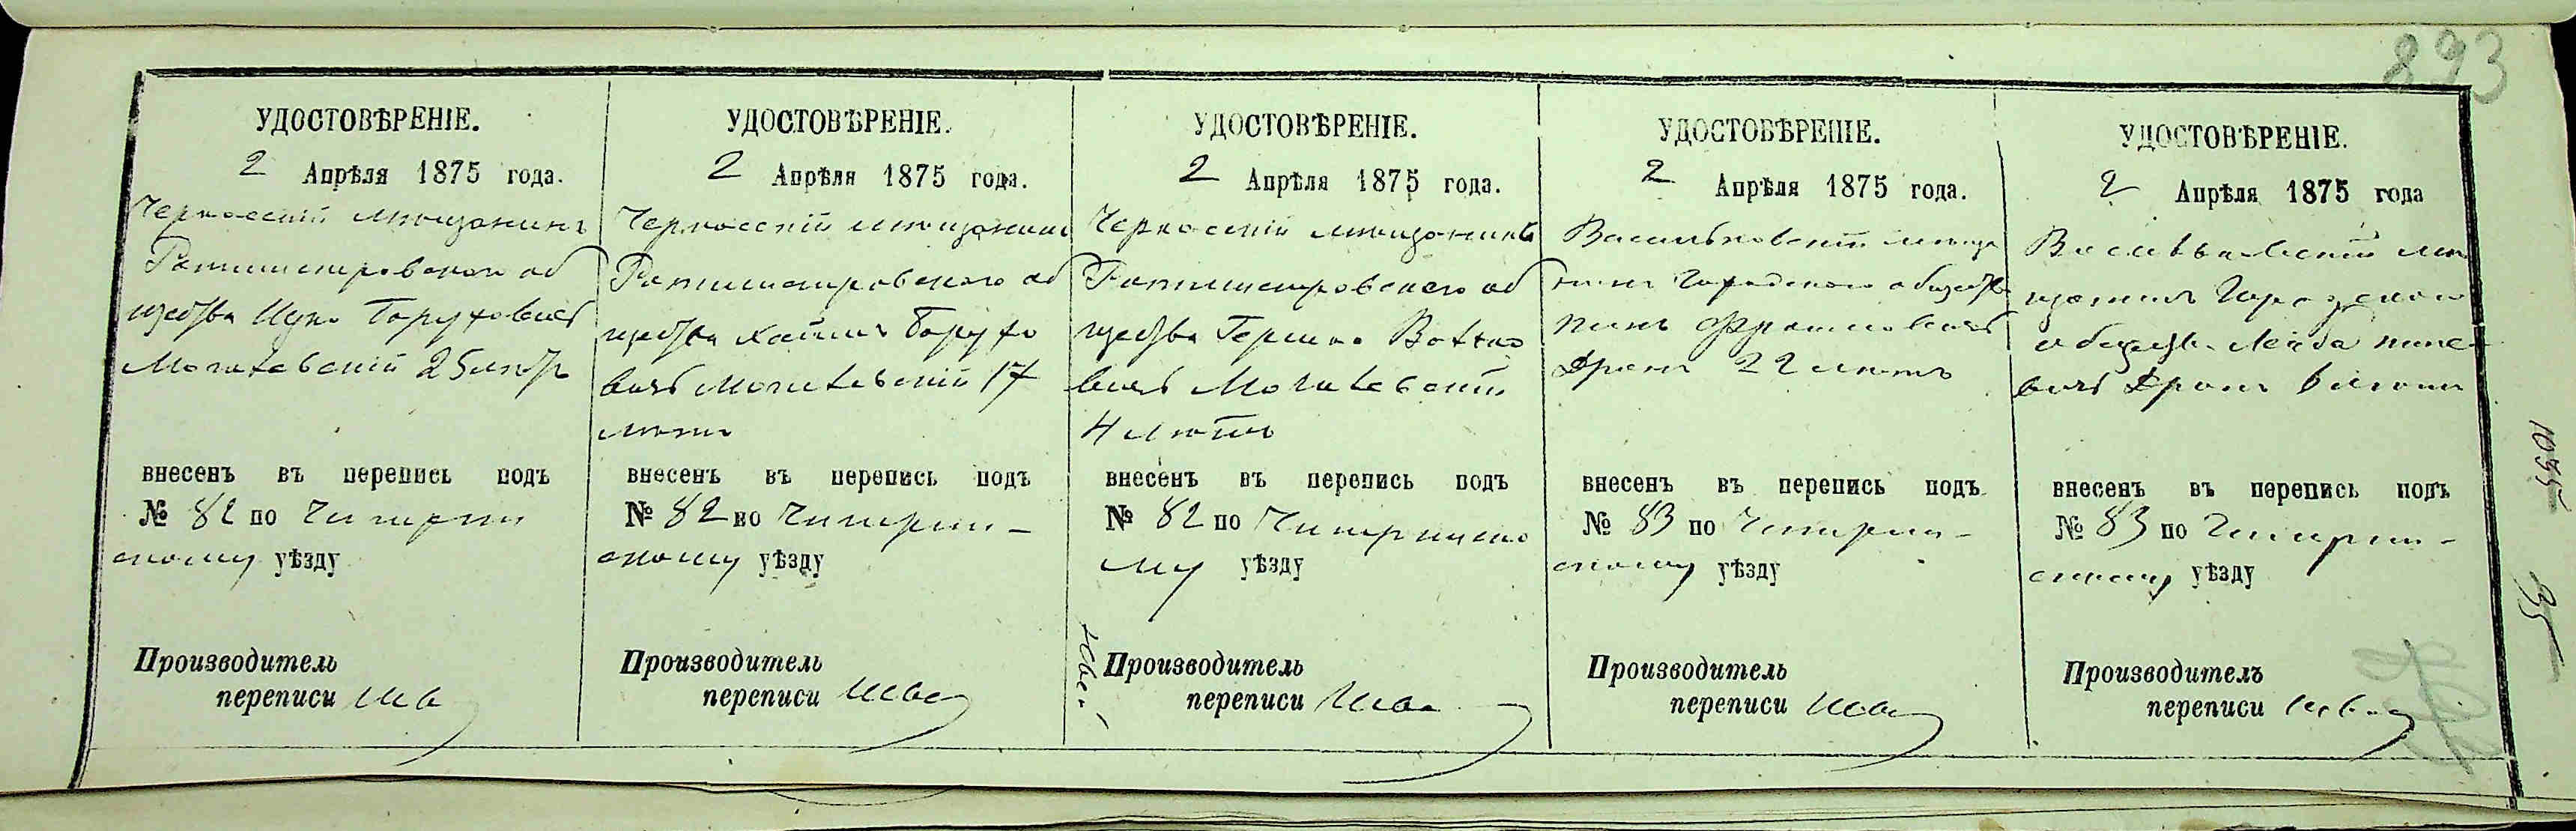 893
УДОСТОВѢРЕНІЕ.
2 Апрѣля 1875 года.
Черкасскій мѣщанинъ
Ротмистровскаго об
щества Ицко Боруховичъ
Могилевскій 25 лѣтъ
внесенъ въ перепись подъ
№ 82 по Чигирин
скому уѣзду
Производитель
переписи
УДОСТОВѢРЕНІЕ.
2 Апрѣля 1875 года.
Черкасскій мѣщанинъ
Ротмистровскаго об
щества Хаимъ Борухо
вичъ Могилевскій 17
лѣтъ
внесенъ въ перепись подъ
№ 82 по Чигирин-
скому уѣзду
Производитель
переписи
УДОСТОВѢРЕНІЕ.
2 Апрѣля 1875 года.
Черкасскій мѣщанинъ
Ротмистровскаго об
щества Гершко Волько
вичъ Могилевскій
4 лѣтъ
внесенъ въ перепись подъ
№ 82 по Чигиринско
му уѣзду
Производитель
переписи
УДОСТОВѢРЕНІЕ.
2 Апрѣля 1875 года.
Васильковскій мѣща
нинъ Городскаго общества
22 лѣтъ
внесенъ въ перепись подъ
№ 83 по Чигирин-
скому уѣзду
Производитель
переписи
УДОСТОВѢРЕНІЕ.
2 Апрѣля 1875 года
Васильковскій мѣ
щанинъ Городскаго
общества Лейба Пинко
вичъ
внесенъ въ перепись подъ
№ 83 по Чигирин-
скому уѣзду
Производитель
переписи
1035
35